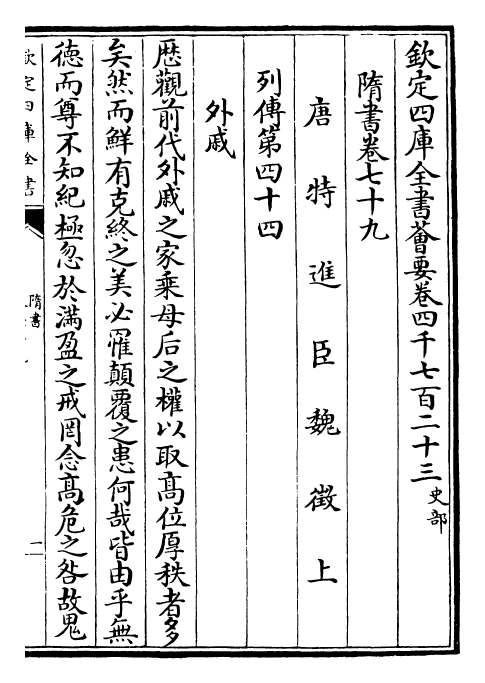 欽定四庫全書薈要卷四千七百二十三史部
隋書卷七十九
唐特進臣魏徵上
列傳第四十四
外戚
歴觀前代外戚之家乘母后之權以取髙位厚秩者多
矣然而鮮有克終之美必罹顛覆之患何哉皆由乎無
德而尊不知紀極忽於滿盈之戒罔念髙危之咎故鬼
欽定四庫全書
隋書